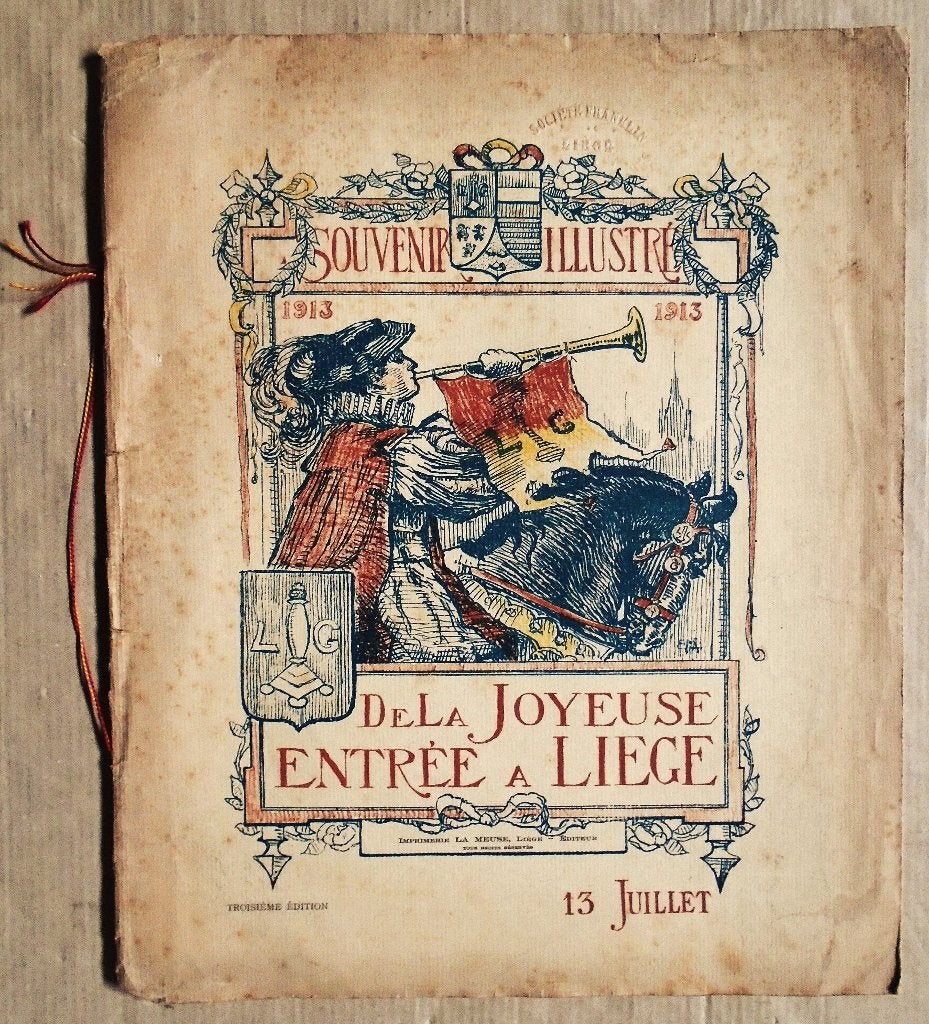 SOCIÉTÉ FRANKLIN
DE
LIÈGE
SOUVENIR ILLUSTRÉ
1913 1913
L G
L G
DE LA JOYEUSE
ENTRÉE A LIEGE
IMPRIMERIE LA MEUSE, LIÉGE – ÉDITEUR
TOUS DROITS RÉSERVÉS
TROISIÈME ÉDITION
13 JUILLET